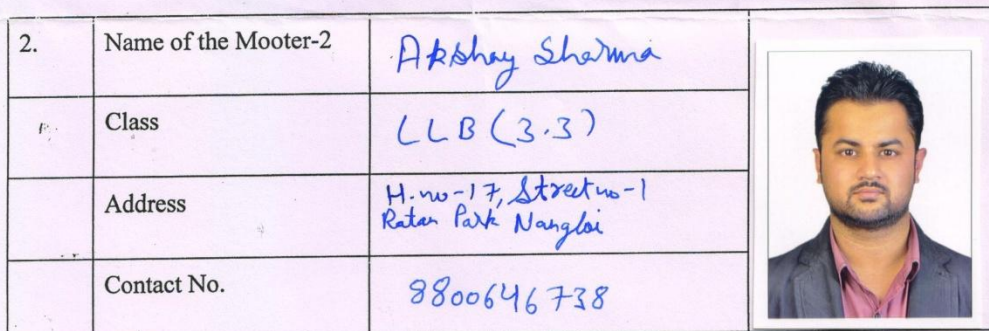 2. Name of the Mooter-2 Akshay Sharma
Class LLB (3.3)
Address H.no-17, Street no-1
Ratan Park Nangloi
Contact No. 8800646738